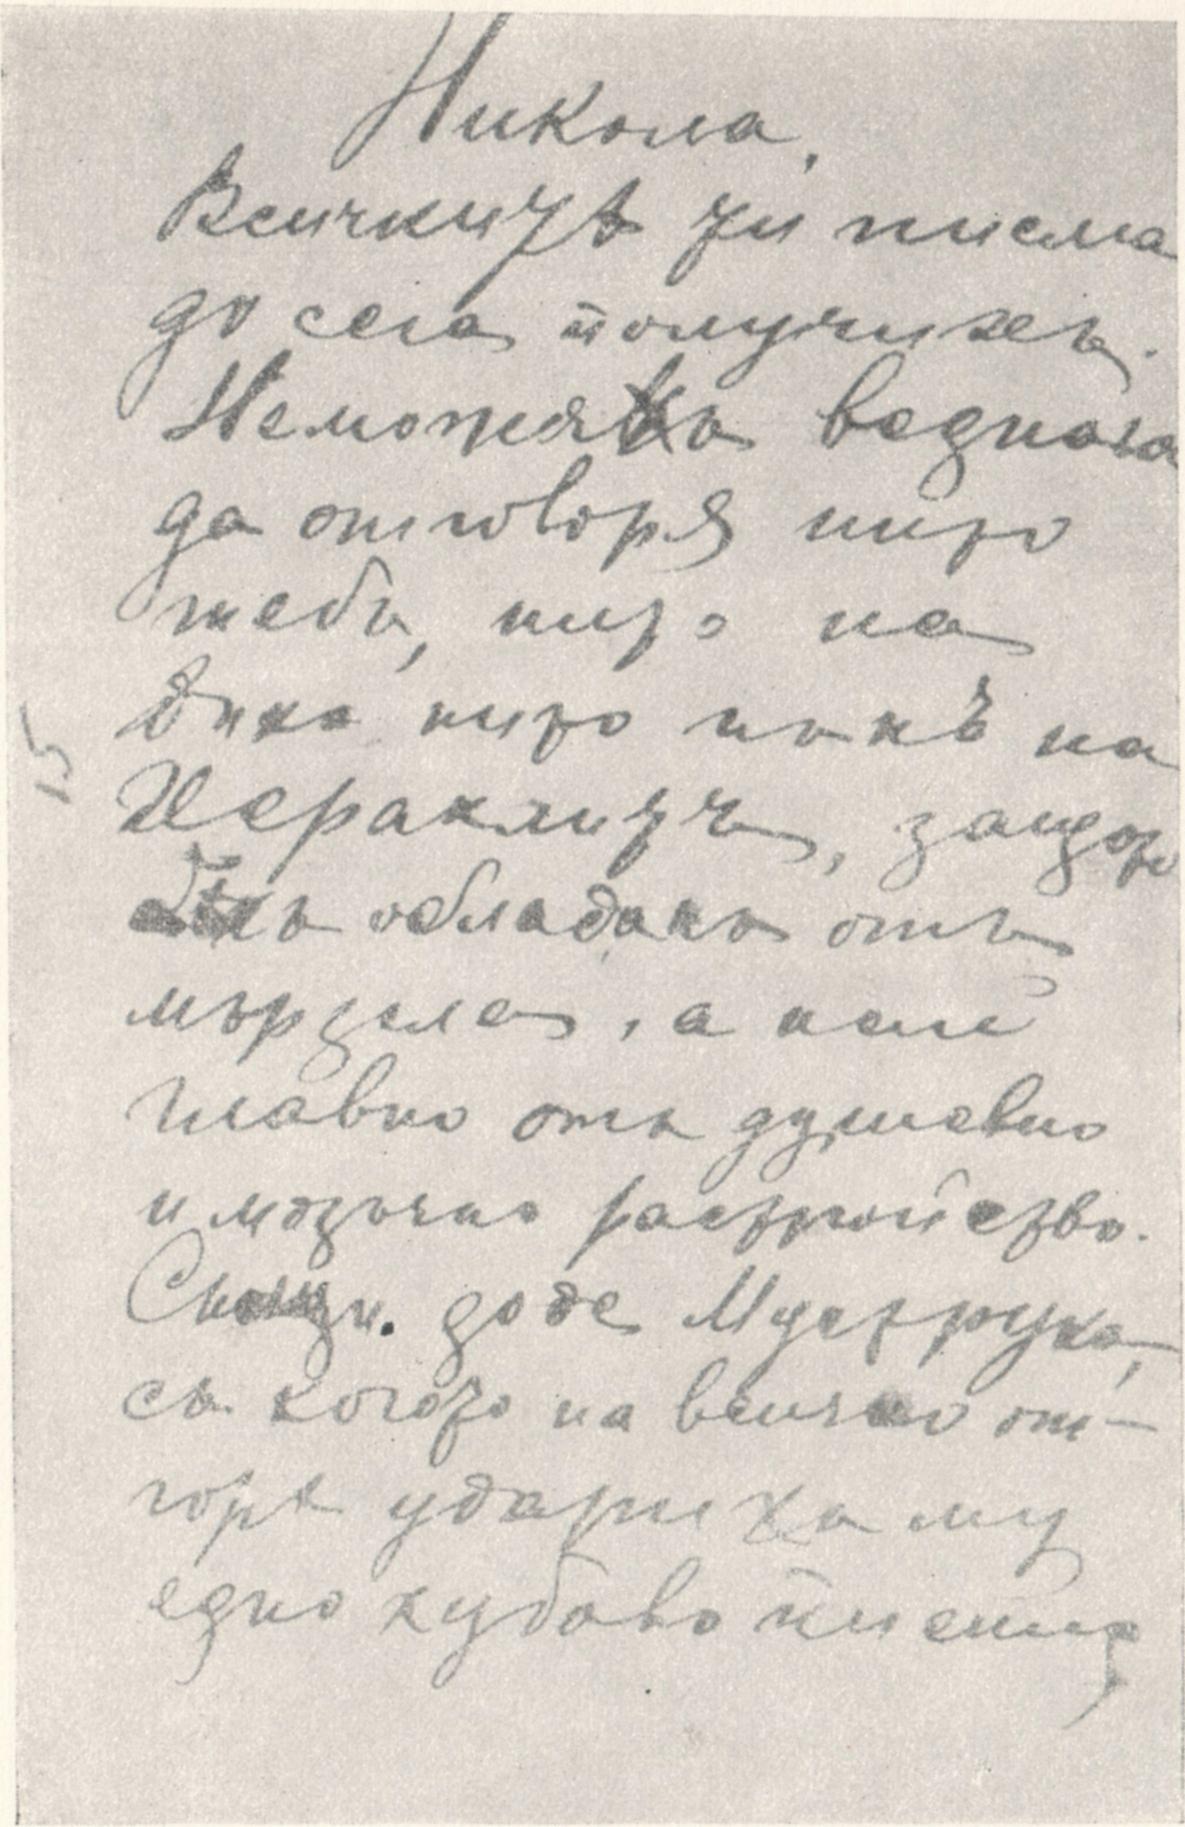 Никола,
Всичкитѣ ти писма
до сега получихъ.
Неможяхъ веднага
да отговоря нито
тебѣ, нито на
Дика нито пъкъ на
Хераклитъ, защото
бѣхъ обладанъ отъ
мързела, а най
главно отъ душевно
и мозъчно растройство.
Снощи доде Муструка,
съ когото на всичко от-
горѣ ударихами
едно хубаво пиение,
15